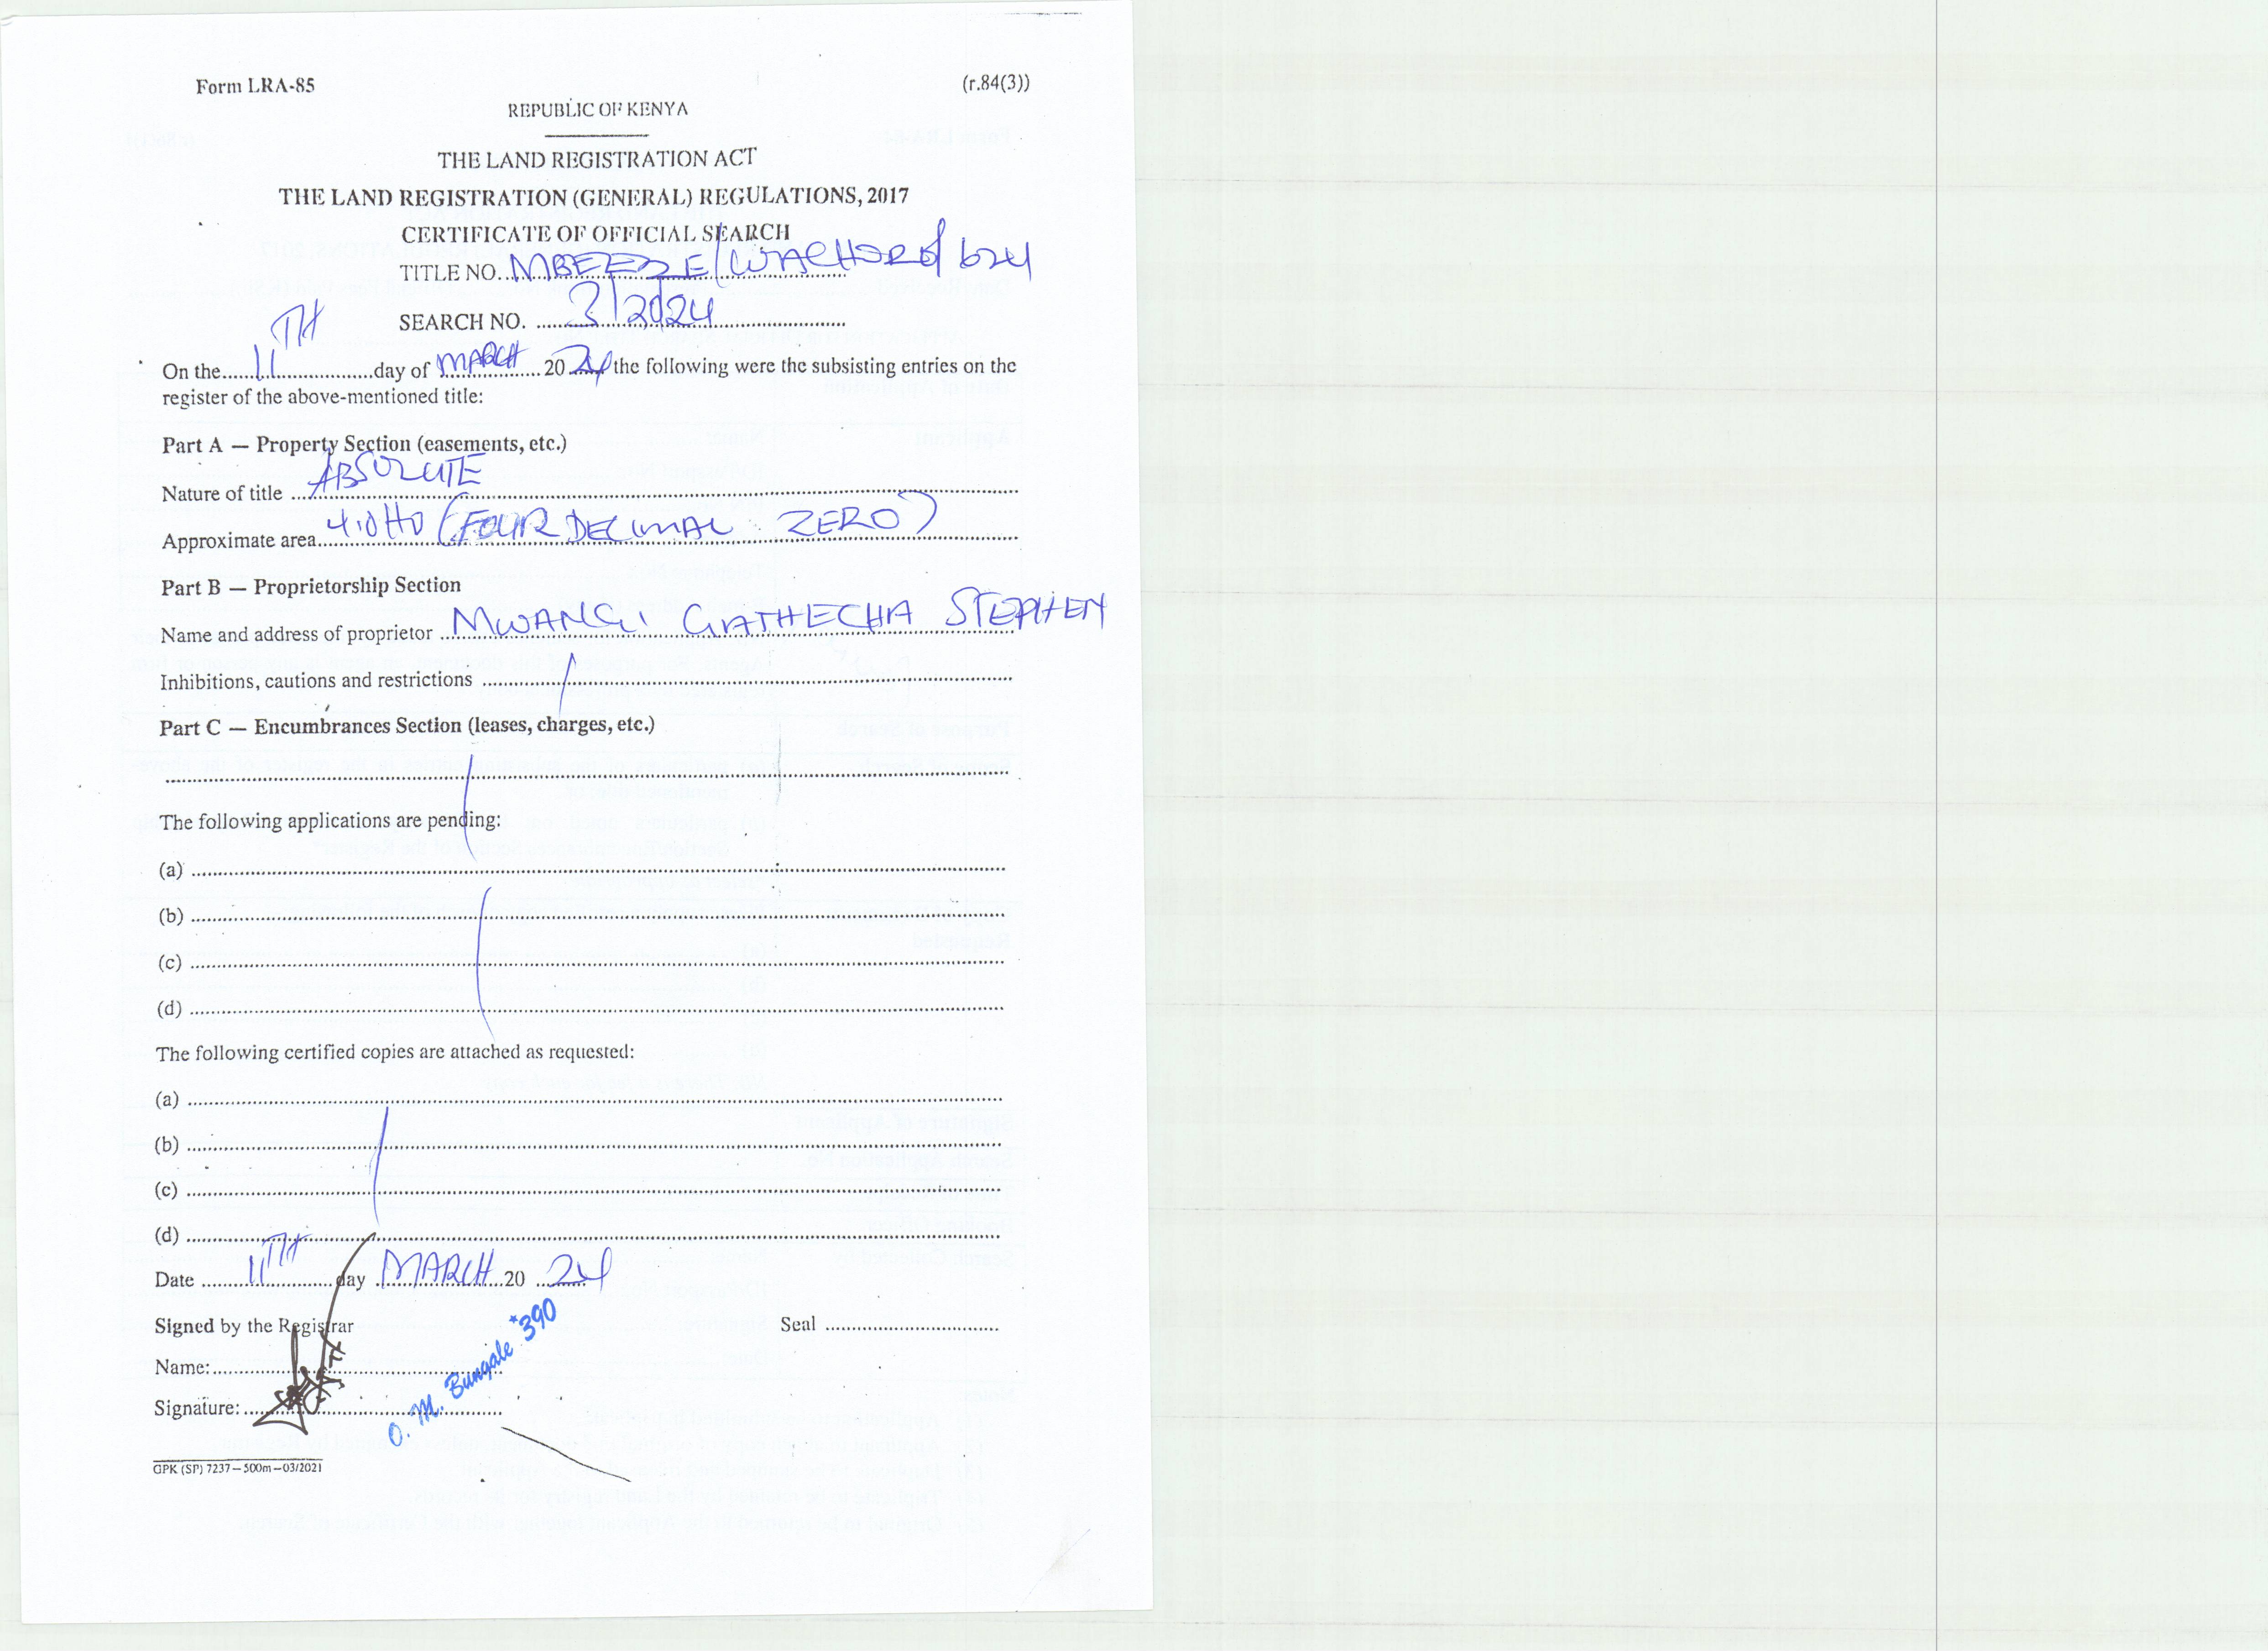 Form LRA-85 (r.84(3))
REPUBLIC OF KENYA
THE LAND REGISTRATION ACT
THE LAND REGISTRATION (GENERAL) REGULATIONS, 2017
CERTIFICATE OF OFFICIAL SEARCH
TITLE NO. MBEEZE/WACHORO/ 624
SEARCH NO. 3/2024
On the 11TH day of MARCH 2024 the following were the subsisting entries on the
register of the above-mentioned title:
Part A — Property Section (easements, etc.)
Nature of title ABSOLUTE
Approximate area 4.0 (FOUR DECIMAL ZERO)
Part B — Proprietorship Section
Name and address of proprietor MWANGI GATHECHA STEPHEN
Inhibitions, cautions and restrictions /
Part C — Encumbrances Section (leases, charges, etc.)
The following applications are pending:
(a)
(b)
(c)
(d)
The following certified copies are attached as requested:
(a)
(b)
(c)
(d)
Date 11TH day MARCH 20 24
Signed by the Registrar Seal
Name:
O. M. Bungale *390
Signature:
GPK (SP) 7237—500m—03/2021